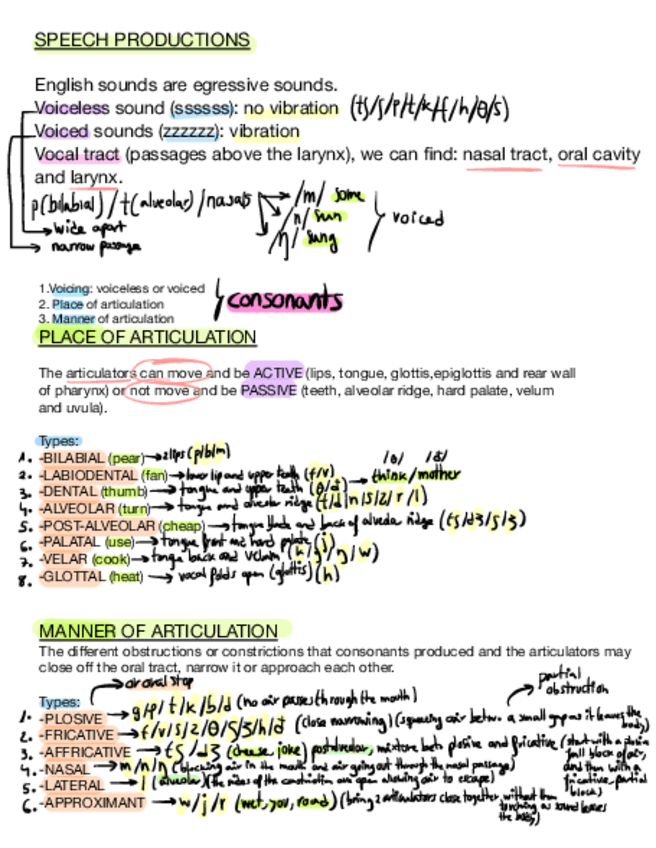 SPEECH PRODUCTIONS
English sounds are egressive sounds.
Voiceless sound (ssssss): no vibration (tʃ/ʃ/p/t/k/f/h/θ/s)
Voiced sounds (zzzzzz): vibration
Vocal tract (passages above the larynx), we can find: nasal tract, oral cavity
and larynx.
p(bilabial)/t(alveolar)/nasals /m/ some
/n/ sun
/ŋ/ sung
voiced
wide apart
narrow passage
1.Voicing: voiceless or voiced
2. Place of articulation
3. Manner of articulation
consonants
PLACE OF ARTICULATION
The articulators can move and be ACTIVE (lips, tongue, glottis,epiglottis and rear wall
of pharynx) or not move and be PASSIVE (teeth, alveolar ridge, hard palate, velum
and uvula).
Types:
1. -BILABIAL (pear) → 2 lips (p/b/m)
2. -LABIODENTAL (fan) → lower lip and upper teeth (f/v)
/θ/ /ð/
3. -DENTAL (thumb) → tongue and upper teeth (θ/ð) → think/mother
4. -ALVEOLAR (turn) → tongue and alveolar ridge (t/d/n/s/z/r/l)
5. -POST-ALVEOLAR (cheap) → tongue blade and back of alveolar ridge (tʃ/dʒ/ʃ/ʒ)
6. -PALATAL (use) → tongue front and hard palate (j)
7. -VELAR (cook) → tongue back and velum (k/g/ŋ/w)
8. -GLOTTAL (heat) → vocal folds open (glottis) (h)
MANNER OF ARTICULATION
The different obstructions or constrictions that consonants produced and the articulators may
close off the oral tract, narrow it or approach each other.
Types: → or oral stop
partial obstruction
1. -PLOSIVE → g/p/t/k/b/d (no air passes through the mouth)
2. -FRICATIVE → f/v/s/z/θ/ʃ/ʒ/h/ð (close narrowing) (squeezy air betw. a small gap as it leaves the body)
3. -AFFRICATIVE → tʃ/dʒ (cheese, joke) postalveolar, mixture betw plosive and fricative (start with a plosive full block of air, and then with a fricative, partial block)
4. -NASAL → m/n/ŋ (blocking air in the mouth and air going out through the nasal passage)
5. -LATERAL → l (alveolar) (the sides of the constriction are open allowing air to escape)
6. -APPROXIMANT → w/j/r (wet, you, road) (bring 2 articulators close together without them touching as sound leaves the body)